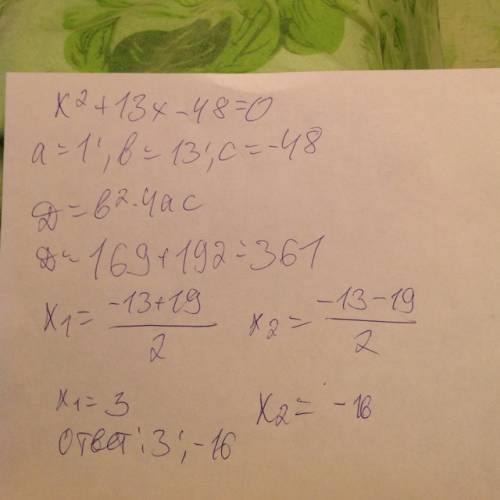 x²+13x-48=0
a=1; в=13; c=-48
D=в²-4ac
D=169+192=361
x₁=(-13+19)/2 x₂=(-13-19)/2
x₁=3 x₂=-16
ответ: 3; -16